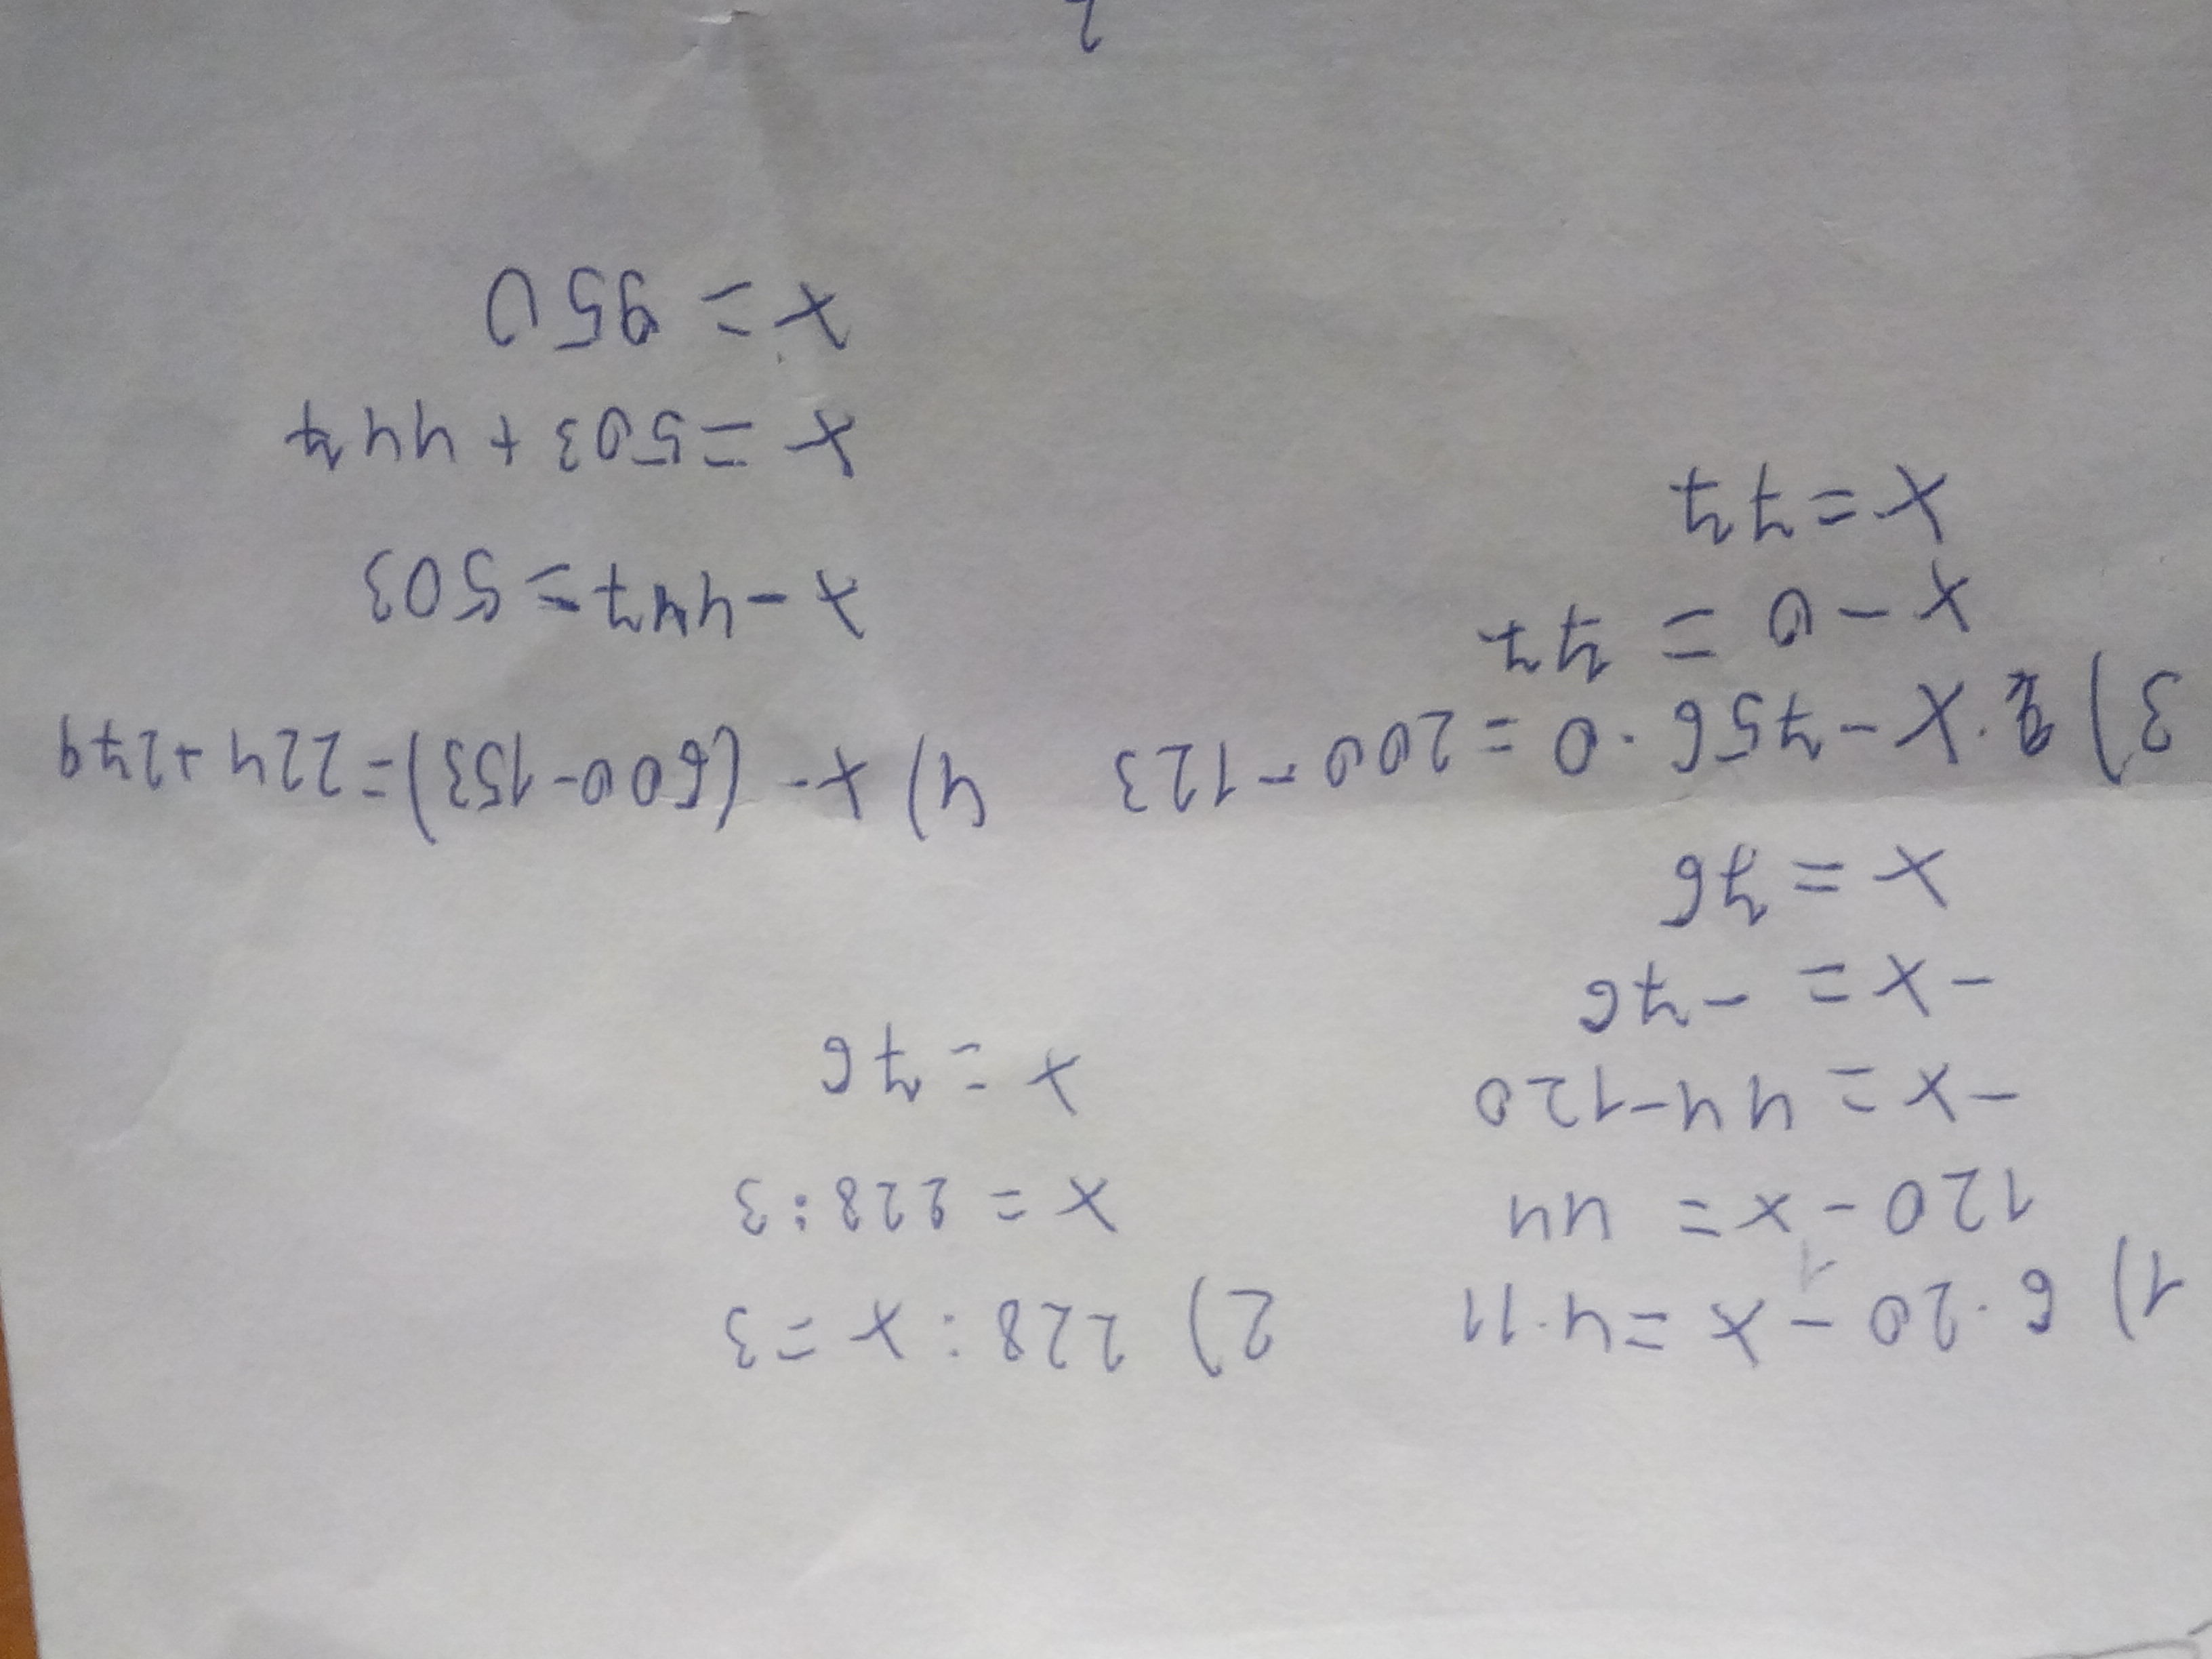 1) 6·20-x=4·11
120-x=44
-x=44-120
-x=-76
x=76
2) 228:x=3
x=228:3
x=76
3) x-756·0=200-123
x-0=77
x=77
4) x-(600-153)=224+279
x-447=503
x=503+447
x=950